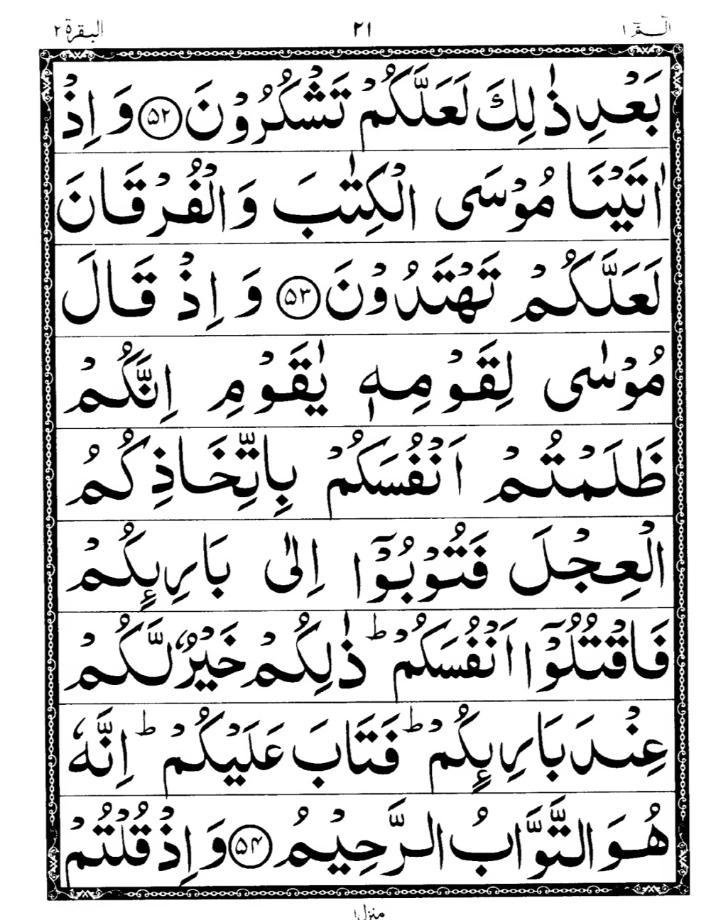 الٓمّٓ ١ ٢١ البقرة ٢
بَعْدِ ذٰلِكَ لَعَلَّكُمْ تَشْكُرُوْنَ ﴿۵۲﴾ وَ اِذْ
اٰتَيْنَا مُوْسَى الْكِتٰبَ وَالْفُرْقَانَ
لَعَلَّكُمْ تَهْتَدُوْنَ ﴿۵۳﴾ وَ اِذْ قَالَ
مُوْسٰى لِقَوْمِهٖ يٰقَوْمِ اِنَّكُمْ
ظَلَمْتُمْ اَنْفُسَكُمْ بِاتِّخَاذِكُمُ
الْعِجْلَ فَتُوْبُوْٓا اِلٰى بَارِىِٕكُمْ
فَاقْتُلُوْٓا اَنْفُسَكُمْ ؕ ذٰلِكُمْ خَيْرٌ لَّكُمْ
عِنْدَ بَارِىِٕكُمْ ؕ فَتَابَ عَلَيْكُمْ ؕ اِنَّهٗ
هُوَ التَّوَّابُ الرَّحِيْمُ ﴿۵۴﴾ وَ اِذْ قُلْتُمْ
منزل ١